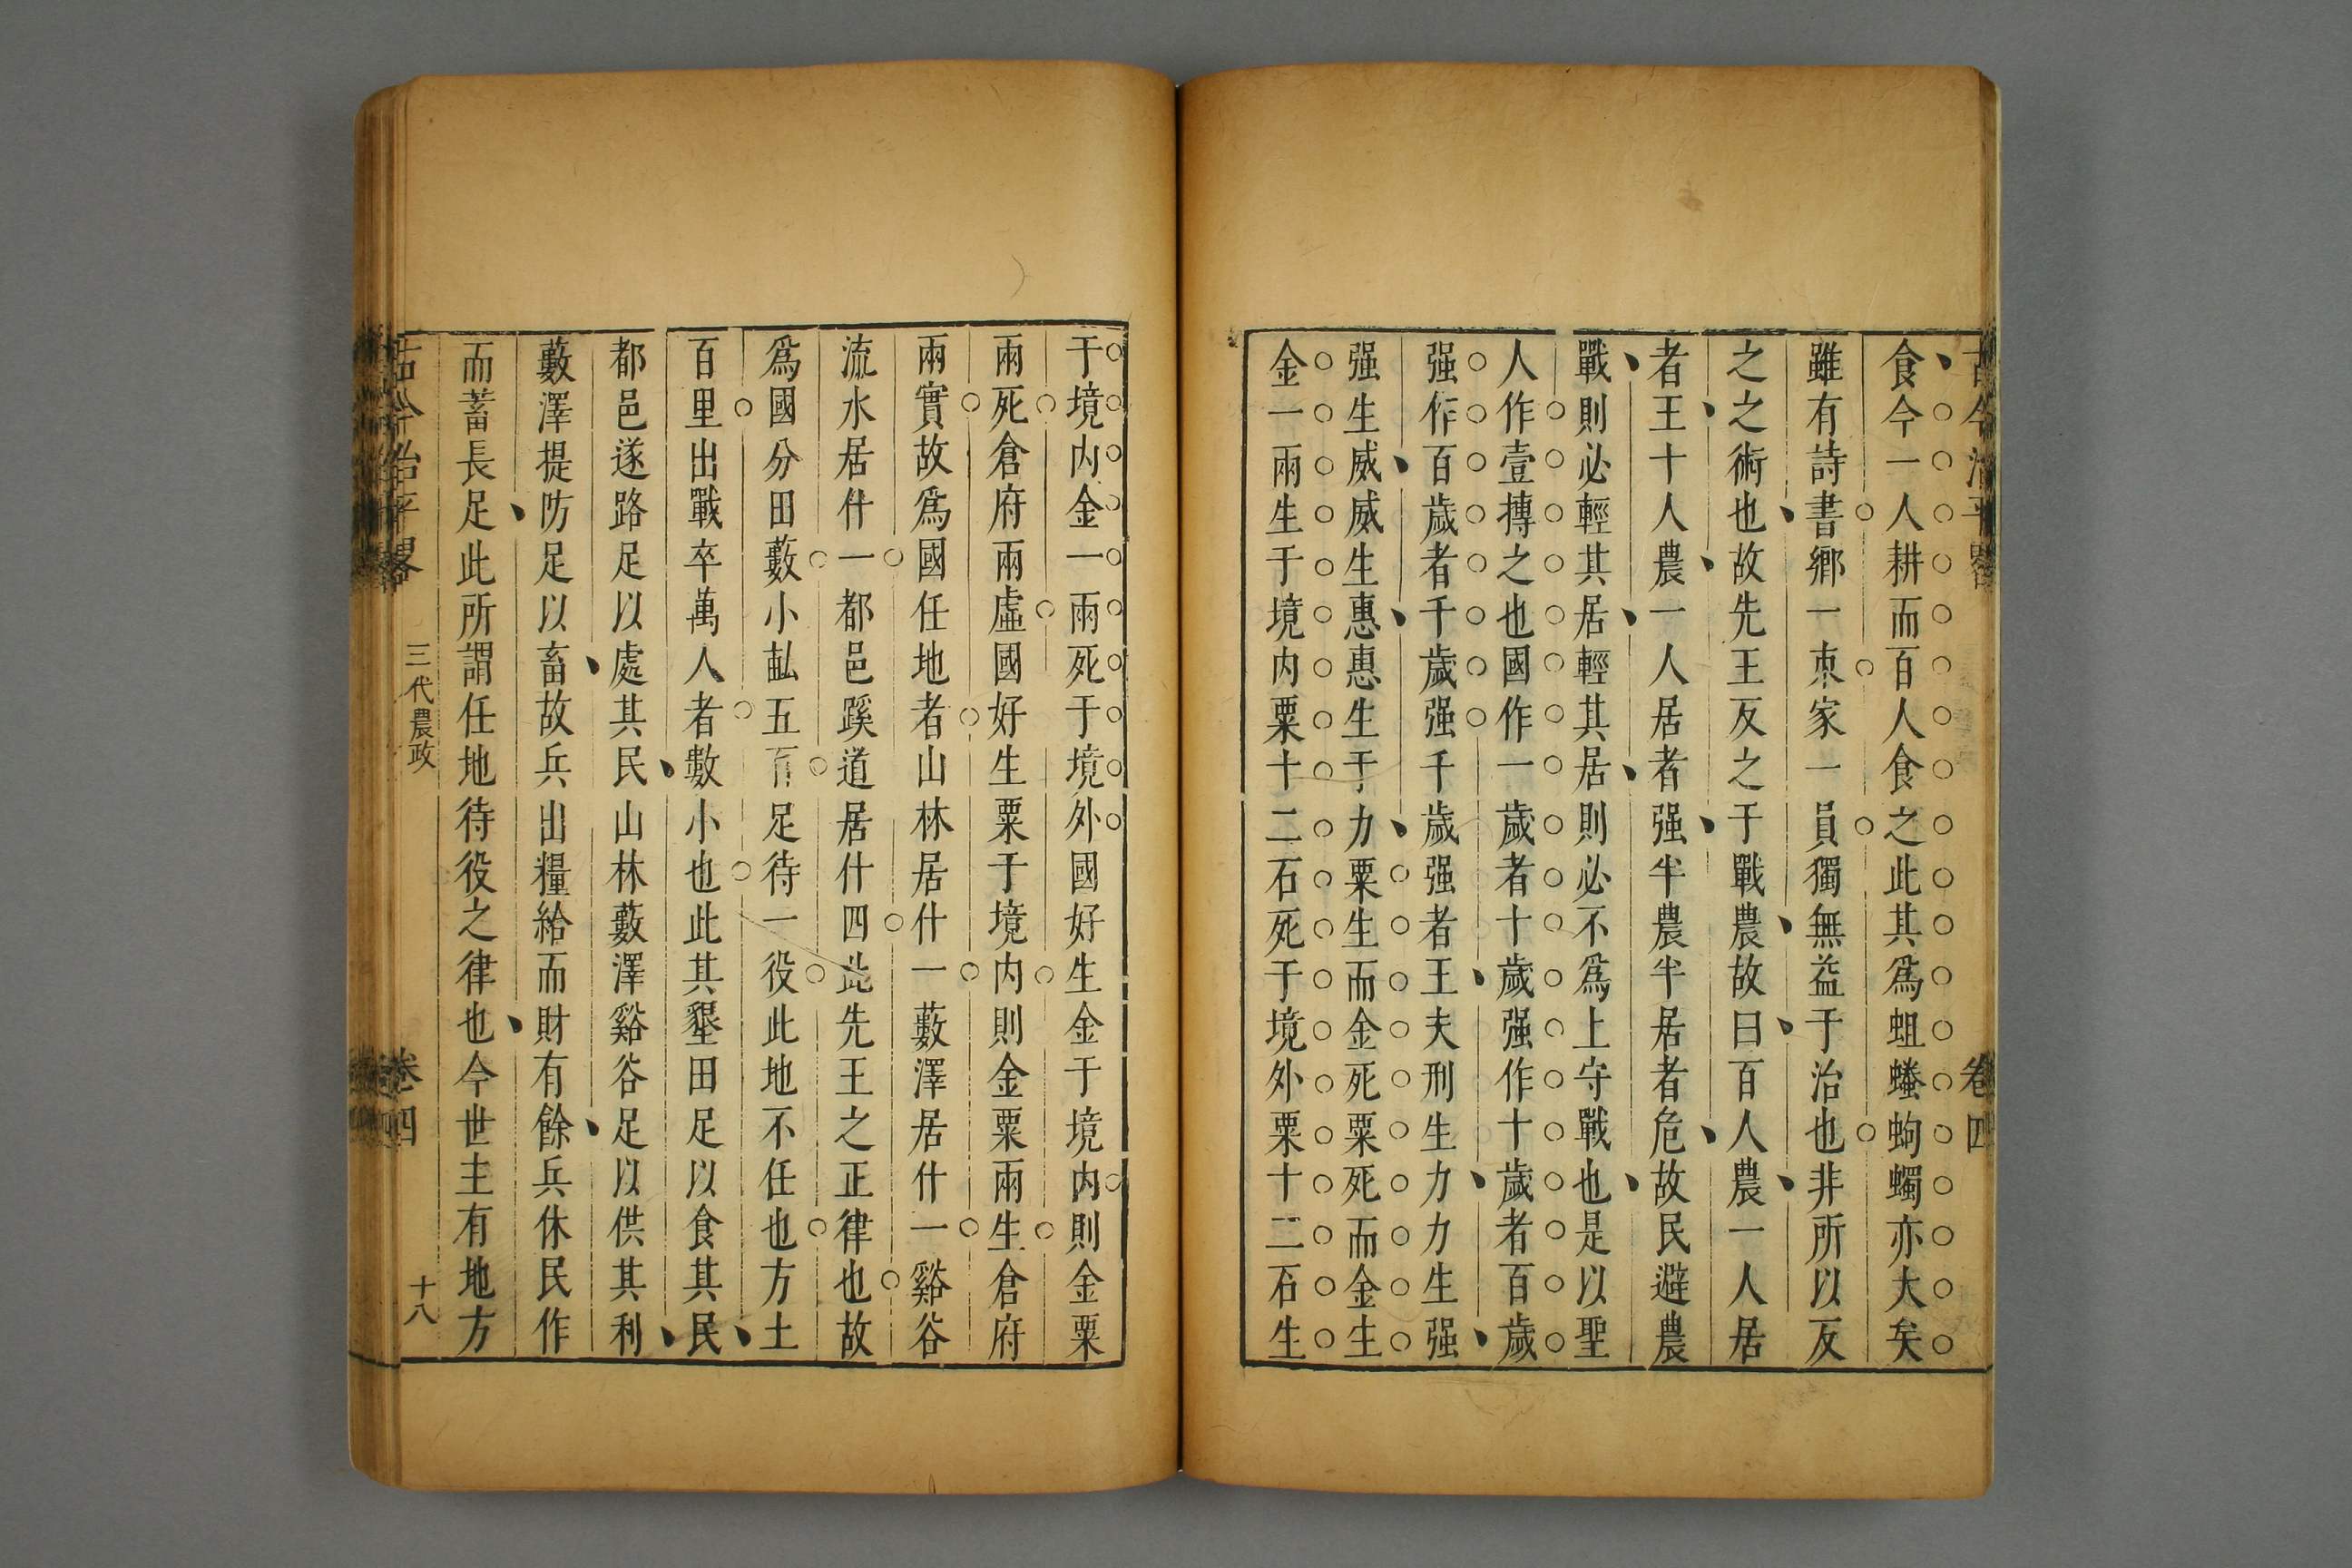 古今治平畧 卷四
食今一人耕而百人食之此其爲蛆螓蚼蠋亦大矣
雖有詩書鄉一束家一員獨無益于治也非所以反
之之術也故先王反之于戰農故曰百人農一人居
者王十人農一人居者强半農半居者危故民避農
戰則必輕其居輕其居則必不爲上守戰也是以聖
人作壹摶之也國作一歲者十歲强作十歲者百歲
强作百歲者千歲强千歲强者王夫刑生力力生强
强生威威生惠惠生于力粟生而金死粟死而金生
金一兩生于境内粟十二石死于境外粟十二石生
于境内金一兩死于境外國好生金于境内則金粟
兩死倉府兩虛國好生粟于境内則金粟兩生倉府
兩實故爲國任地者山林居什一藪澤居什一谿谷
流水居什一都邑蹊道居什四此先王之正律也故
爲國分田藪小畝五百足待一役此地不任也方土
百里出戰卒萬人者數小也此其墾田足以食其民
都邑遂路足以處其民山林藪澤谿谷足以供其利
藪澤提防足以畜故兵出糧給而財有餘兵休民作
而蓄長足此所謂任地待役之律也今世主有地方
古今治平畧 三代農政 卷四 十八